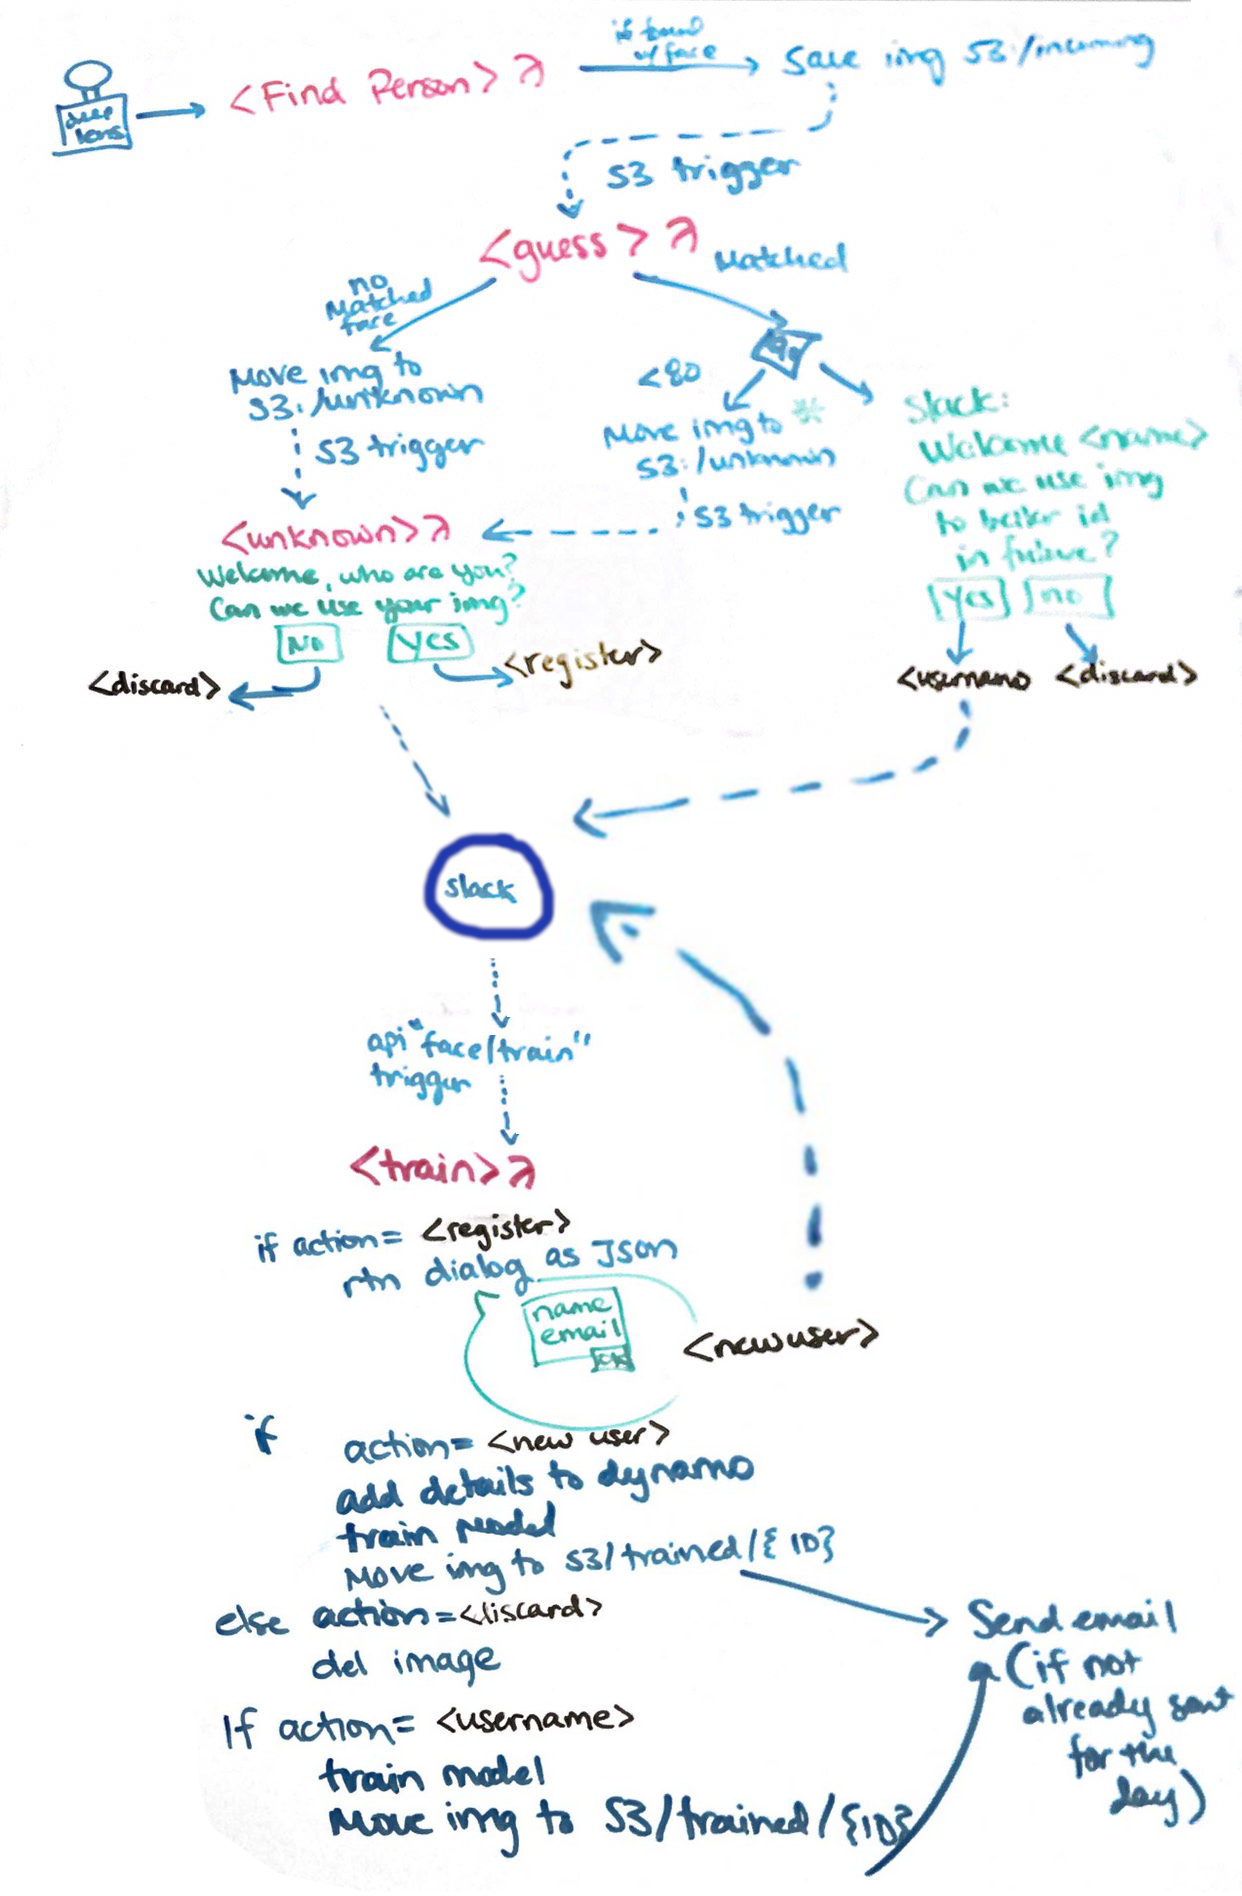 if found
w/face
deep
lens
<Find Person> λ
Save img S3:/incoming
S3 trigger
<guess> λ
Matched
no
Matched
face
Move img to
S3:/unknown
S3 trigger
<80
Move img to *
S3:/unknown
S3 trigger
Slack:
Welcome <name>
Can we use img
to better id
in future?
Yes
no
<username>
<discard>
<unknown> λ
Welcome, who are you?
Can we use your img?
No
Yes
<discard>
<register>
slack
api "face/train"
trigger
<train> λ
if action= <register>
rtn dialog as Json
name
email
ok
<newuser>
if action= <new user>
add details to dynamo
train model
Move img to S3/trained/{ID}
else action=<discard>
del image
If action= <username>
train model
Move img to S3/trained/{ID}
Send email
(if not
already sent
for the
day)